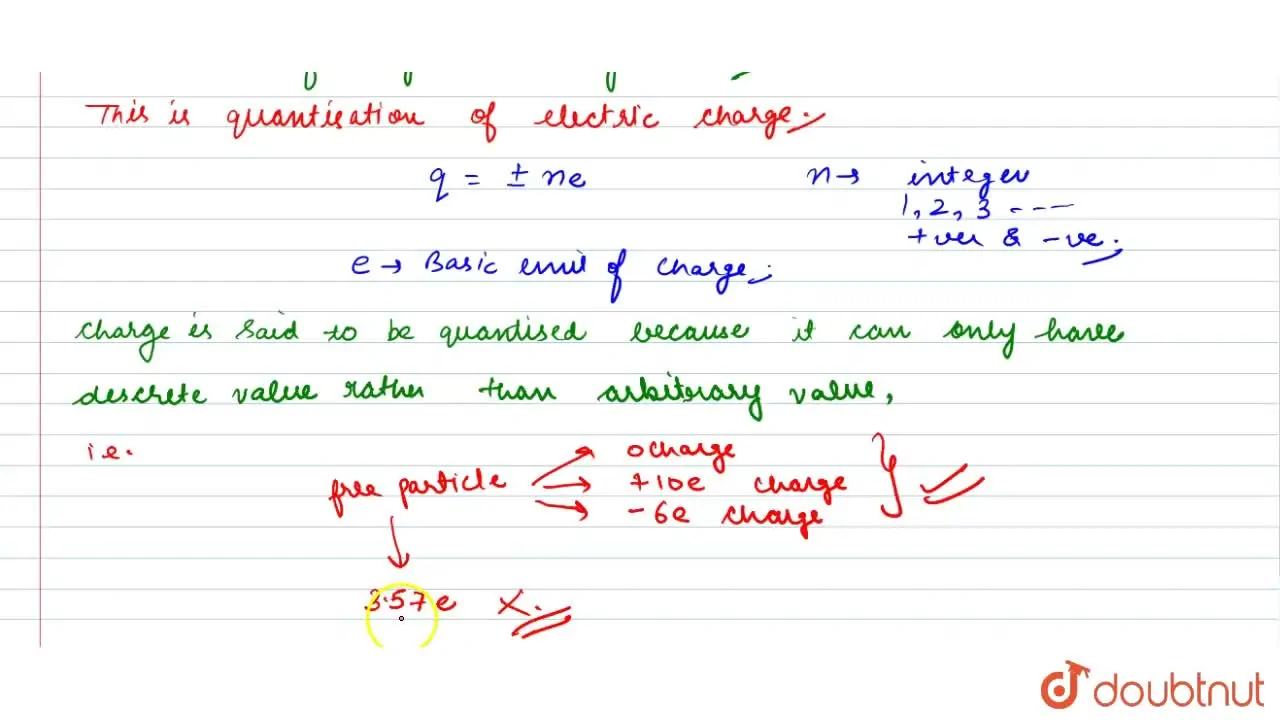 This is quantisation of electric charge.
q = ± ne n → integer
1, 2, 3 ----
+ve & -ve.
e → Basic unit of charge.
charge is said to be quantised because it can only have
descrete value rather than arbitrary value,
i.e.
0 charge
free particle + 10e charge
- 6e charge
3.57e X.
doubtnut